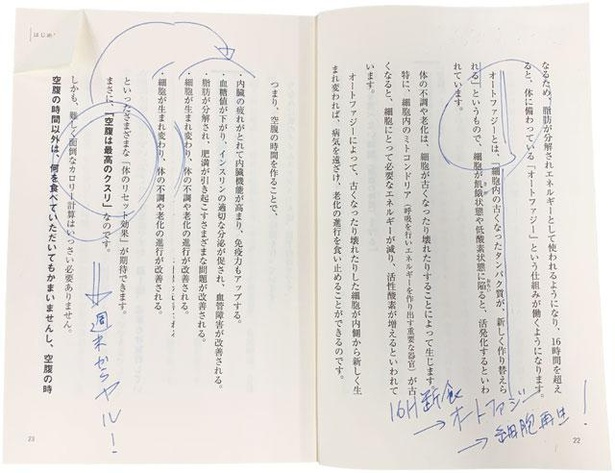 なるため、脂肪が分解されエネルギーとして使われるようになり、16時間を超え
ると、体に備わっている「オートファジー」という仕組みが働くようになります。
オートファジーとは、「細胞内の古くなったタンパク質が、新しく作り替えら
れる」というもので、細胞が飢餓状態や低酸素状態に陥ると、活発化するといわ
れています。
体の不調や老化は、細胞が古くなったり壊れたりすることによって生じます。
特に、細胞内のミトコンドリア（呼吸を行いエネルギーを作り出す重要な器官）が古
くなると、細胞にとって必要なエネルギーが減り、活性酸素が増えるといわれて
います。
オートファジーによって、古くなったり壊れたりした細胞が内側から新しく生
まれ変われば、病気を遠ざけ、老化の進行を食い止めることができるのです。
16H断食
→オートファジー
→細胞再生！
22
はじめ
つまり、空腹の時間を作ることで、
・内臓の疲れがとれて内臓機能が高まり、免疫力もアップする。
・血糖値が下がり、インスリンの適切な分泌が促され、血管障害が改善される。
・脂肪が分解され、肥満が引き起こすさまざまな問題が改善される。
・細胞が生まれ変わり、体の不調や老化の進行が改善される。
・細胞が生まれ変わり、体の不調や老化の進行が改善される。
といったさまざまな「体のリセット効果」が期待できます。
まさに、「空腹は最高のクスリ」なのです。
しかも、難しく面倒なカロリー計算はいっさい必要ありません。
空腹の時間以外は、何を食べていただいてもかまいませんし、空腹の時
→週末からヤル！
23